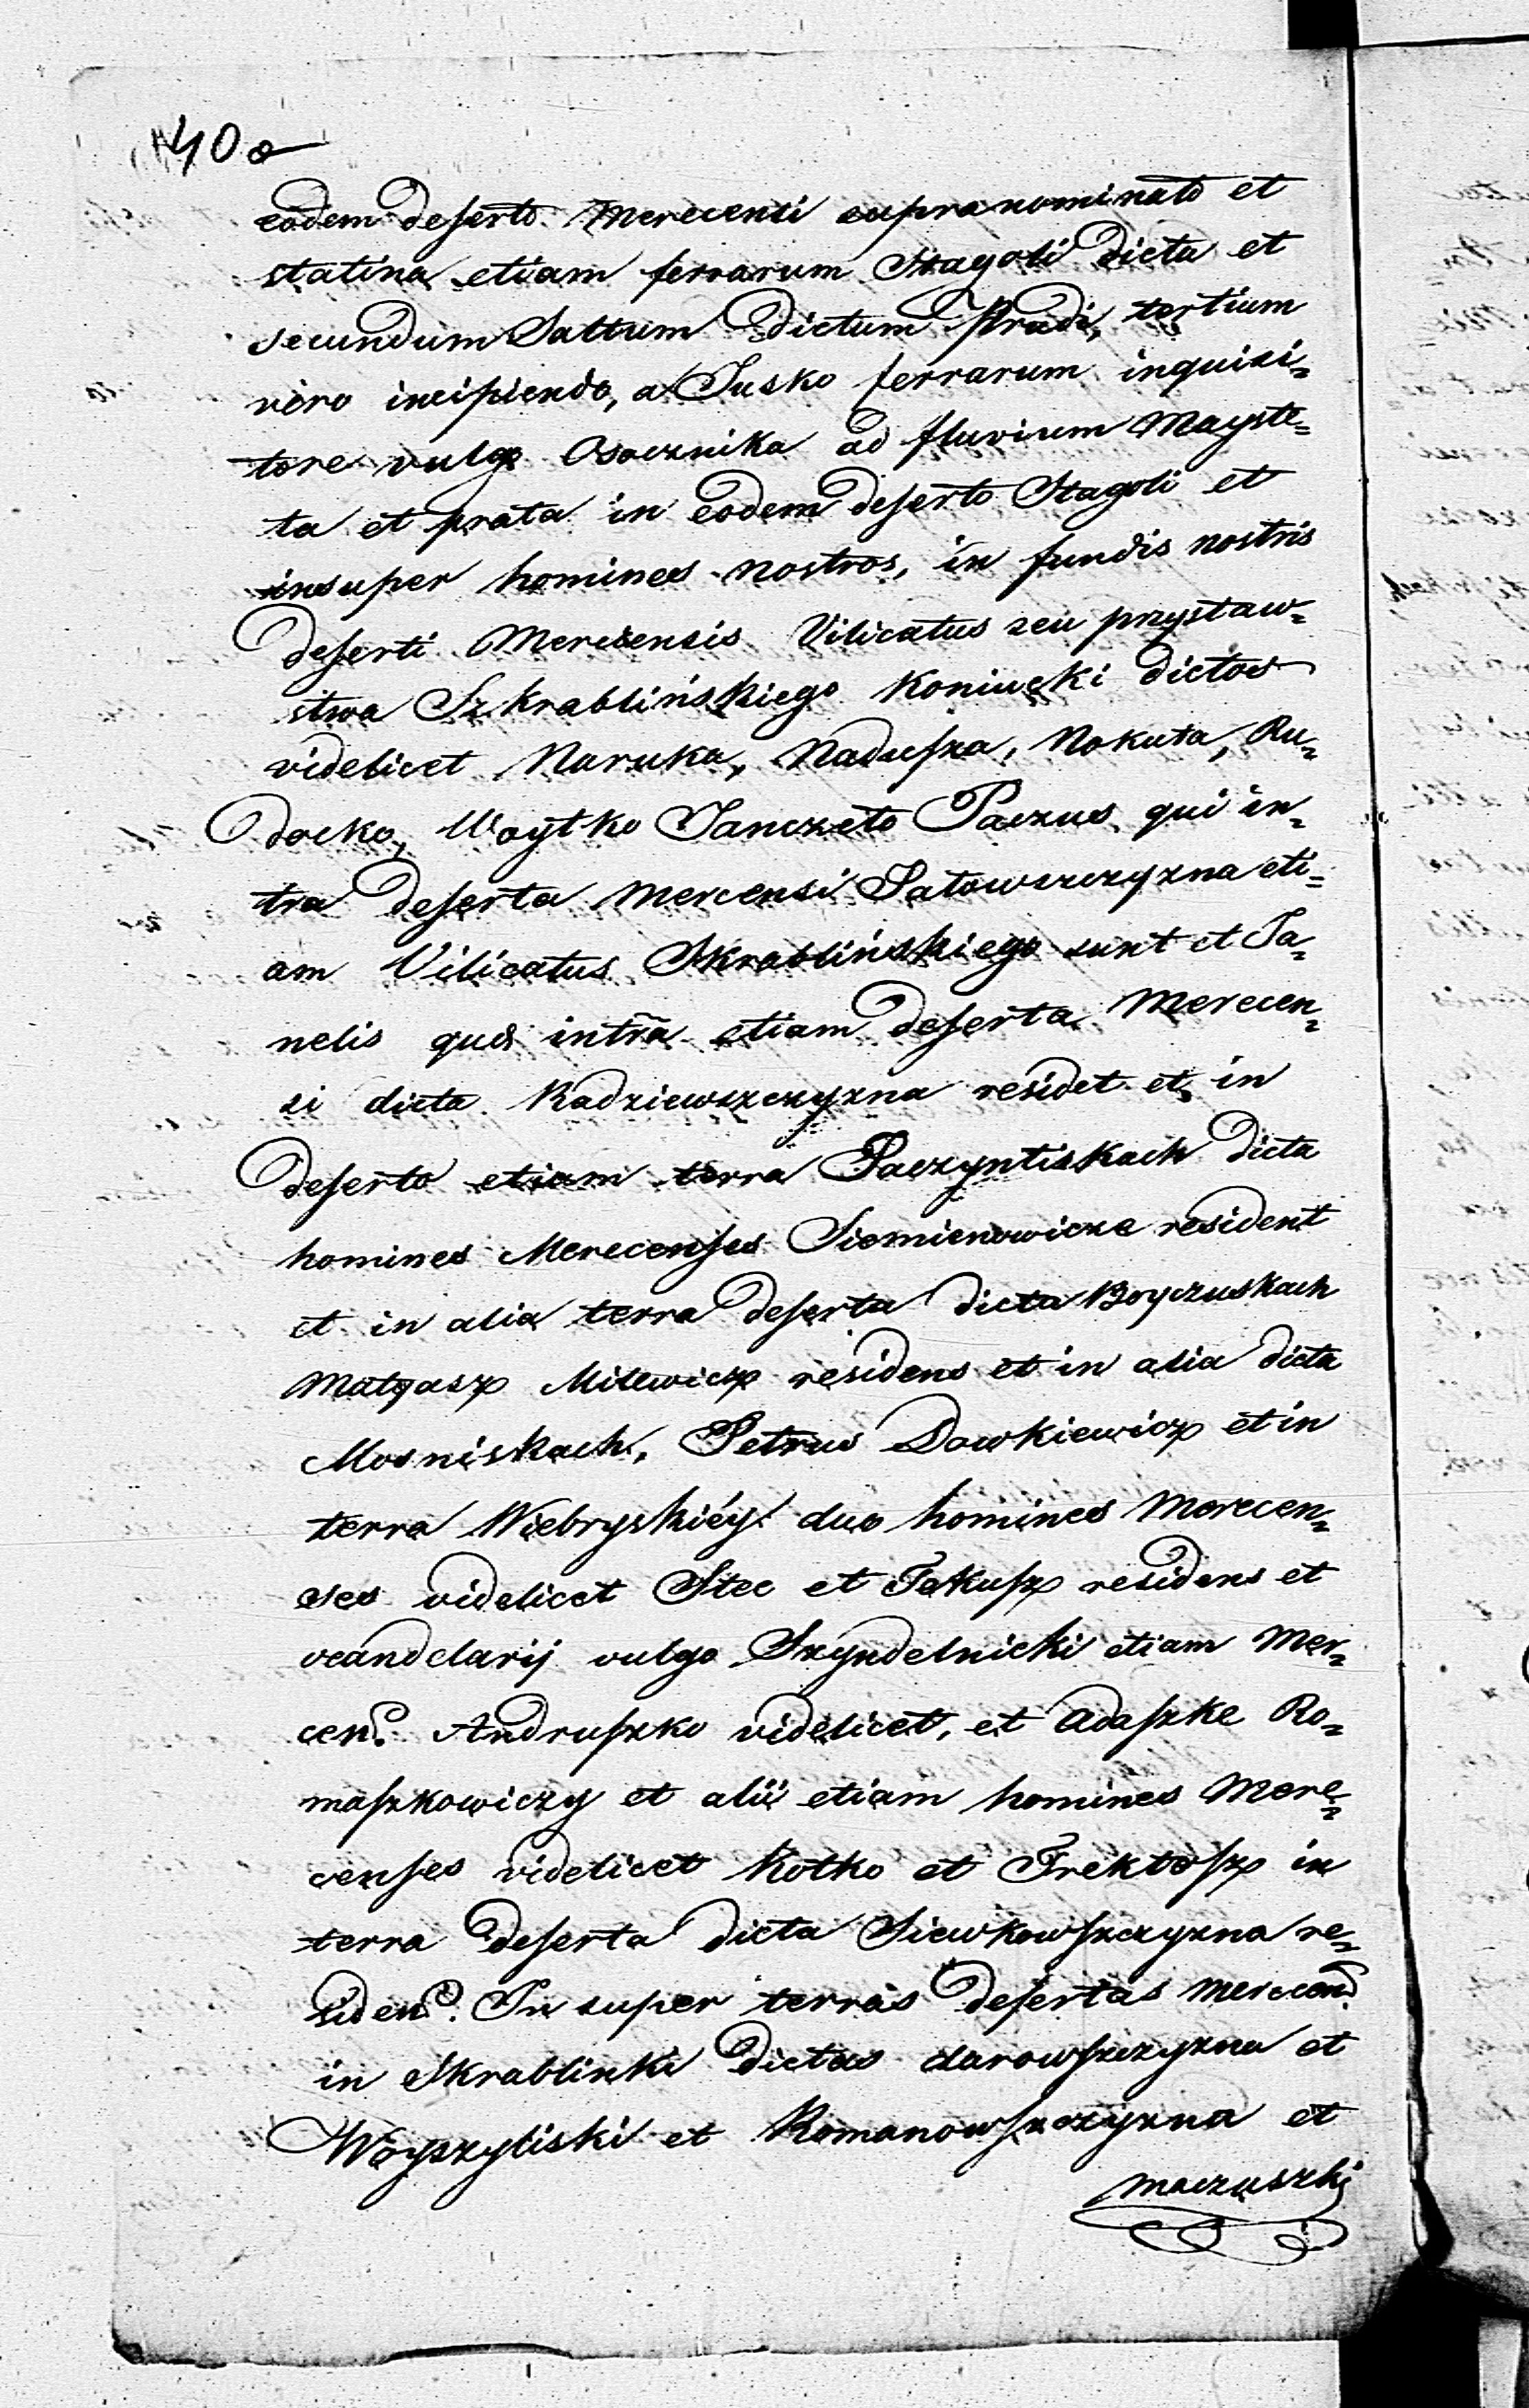 40
eodem deserto Merecensi supranominato et
statina etiam ferrarum Stagoli dicta et
secundum Saltum dictum Prudi, tertium
vero incipiendo, a Jusko ferrarum inquisi=
tore vulgo Osocznika ad fluvium Mayste=
ta et prata in eodem deserto Stagoli et
insuper homines nostros, in fundis nostris
deserti Merecensis Vilicatus seu przystaw=
stwa Szkrablińskiego Koniucki dictos
videlicet Naruka, Naduszza, Nokuta, Ru=
docko, Woytko Janczeto Paczus qui in=
tra deserta Mercensi Satowszczyzna eti=
am Vilicatus Skrablińskiego sunt et Ja=
nelis qui intra etiam deserta Merecen=
si dicta Radziewszczyzna residet et in
deserto etiam terra Paczyntiskach dicta
homines Merecenses Siemienowicze resident
et in alia terra deserta dicta Boyczuskach
Matyasz Milewicz residens et in alia dicta
Mosniskach, Petrus Dowkiewicz et in
terra Wiebryskiéy duo homines Merecen=
ses videlicet Stec et Jakusz residens et
vcandelarij vulgo Szyndelnicki etiam Mer=
cen. Andruszko videlicet, et Adaszke Ro=
maszkowiczy et alii etiam homines Mere=
censes videlicet Kotko et Frektosz in
terra deserta dicta Siewkowszczyzna re=
siden. In super terras desertas Merecen.
in Skrablinki dictas darowszczyzna et
Woyszyliski et Romanowszczyzna et
Maczuszki